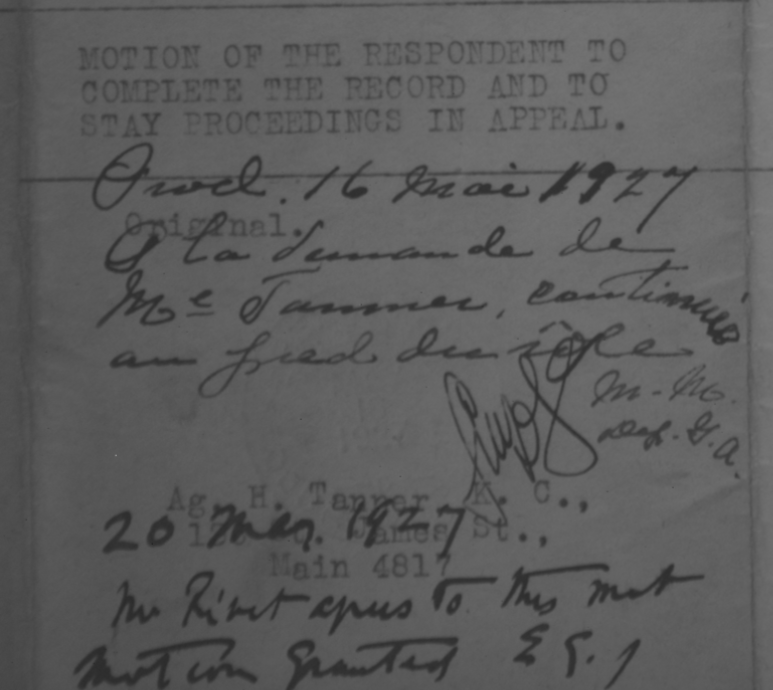 MOTION OF THE RESPONDENT TO
COMPLETE THE RECORD AND TO
STAY PROCEEDINGS IN APPEAL.
Prod. 16 Mai 1927
Original.
A la demande de
Me Tanner, continuée
au pied du rôle
M.
Dep. G. A.
Ag. H. Tanner, K. C.,
James St.,
20 May. 1927
Main 4817
Mr Rivet agrees to this mot
Motion granted E G. J